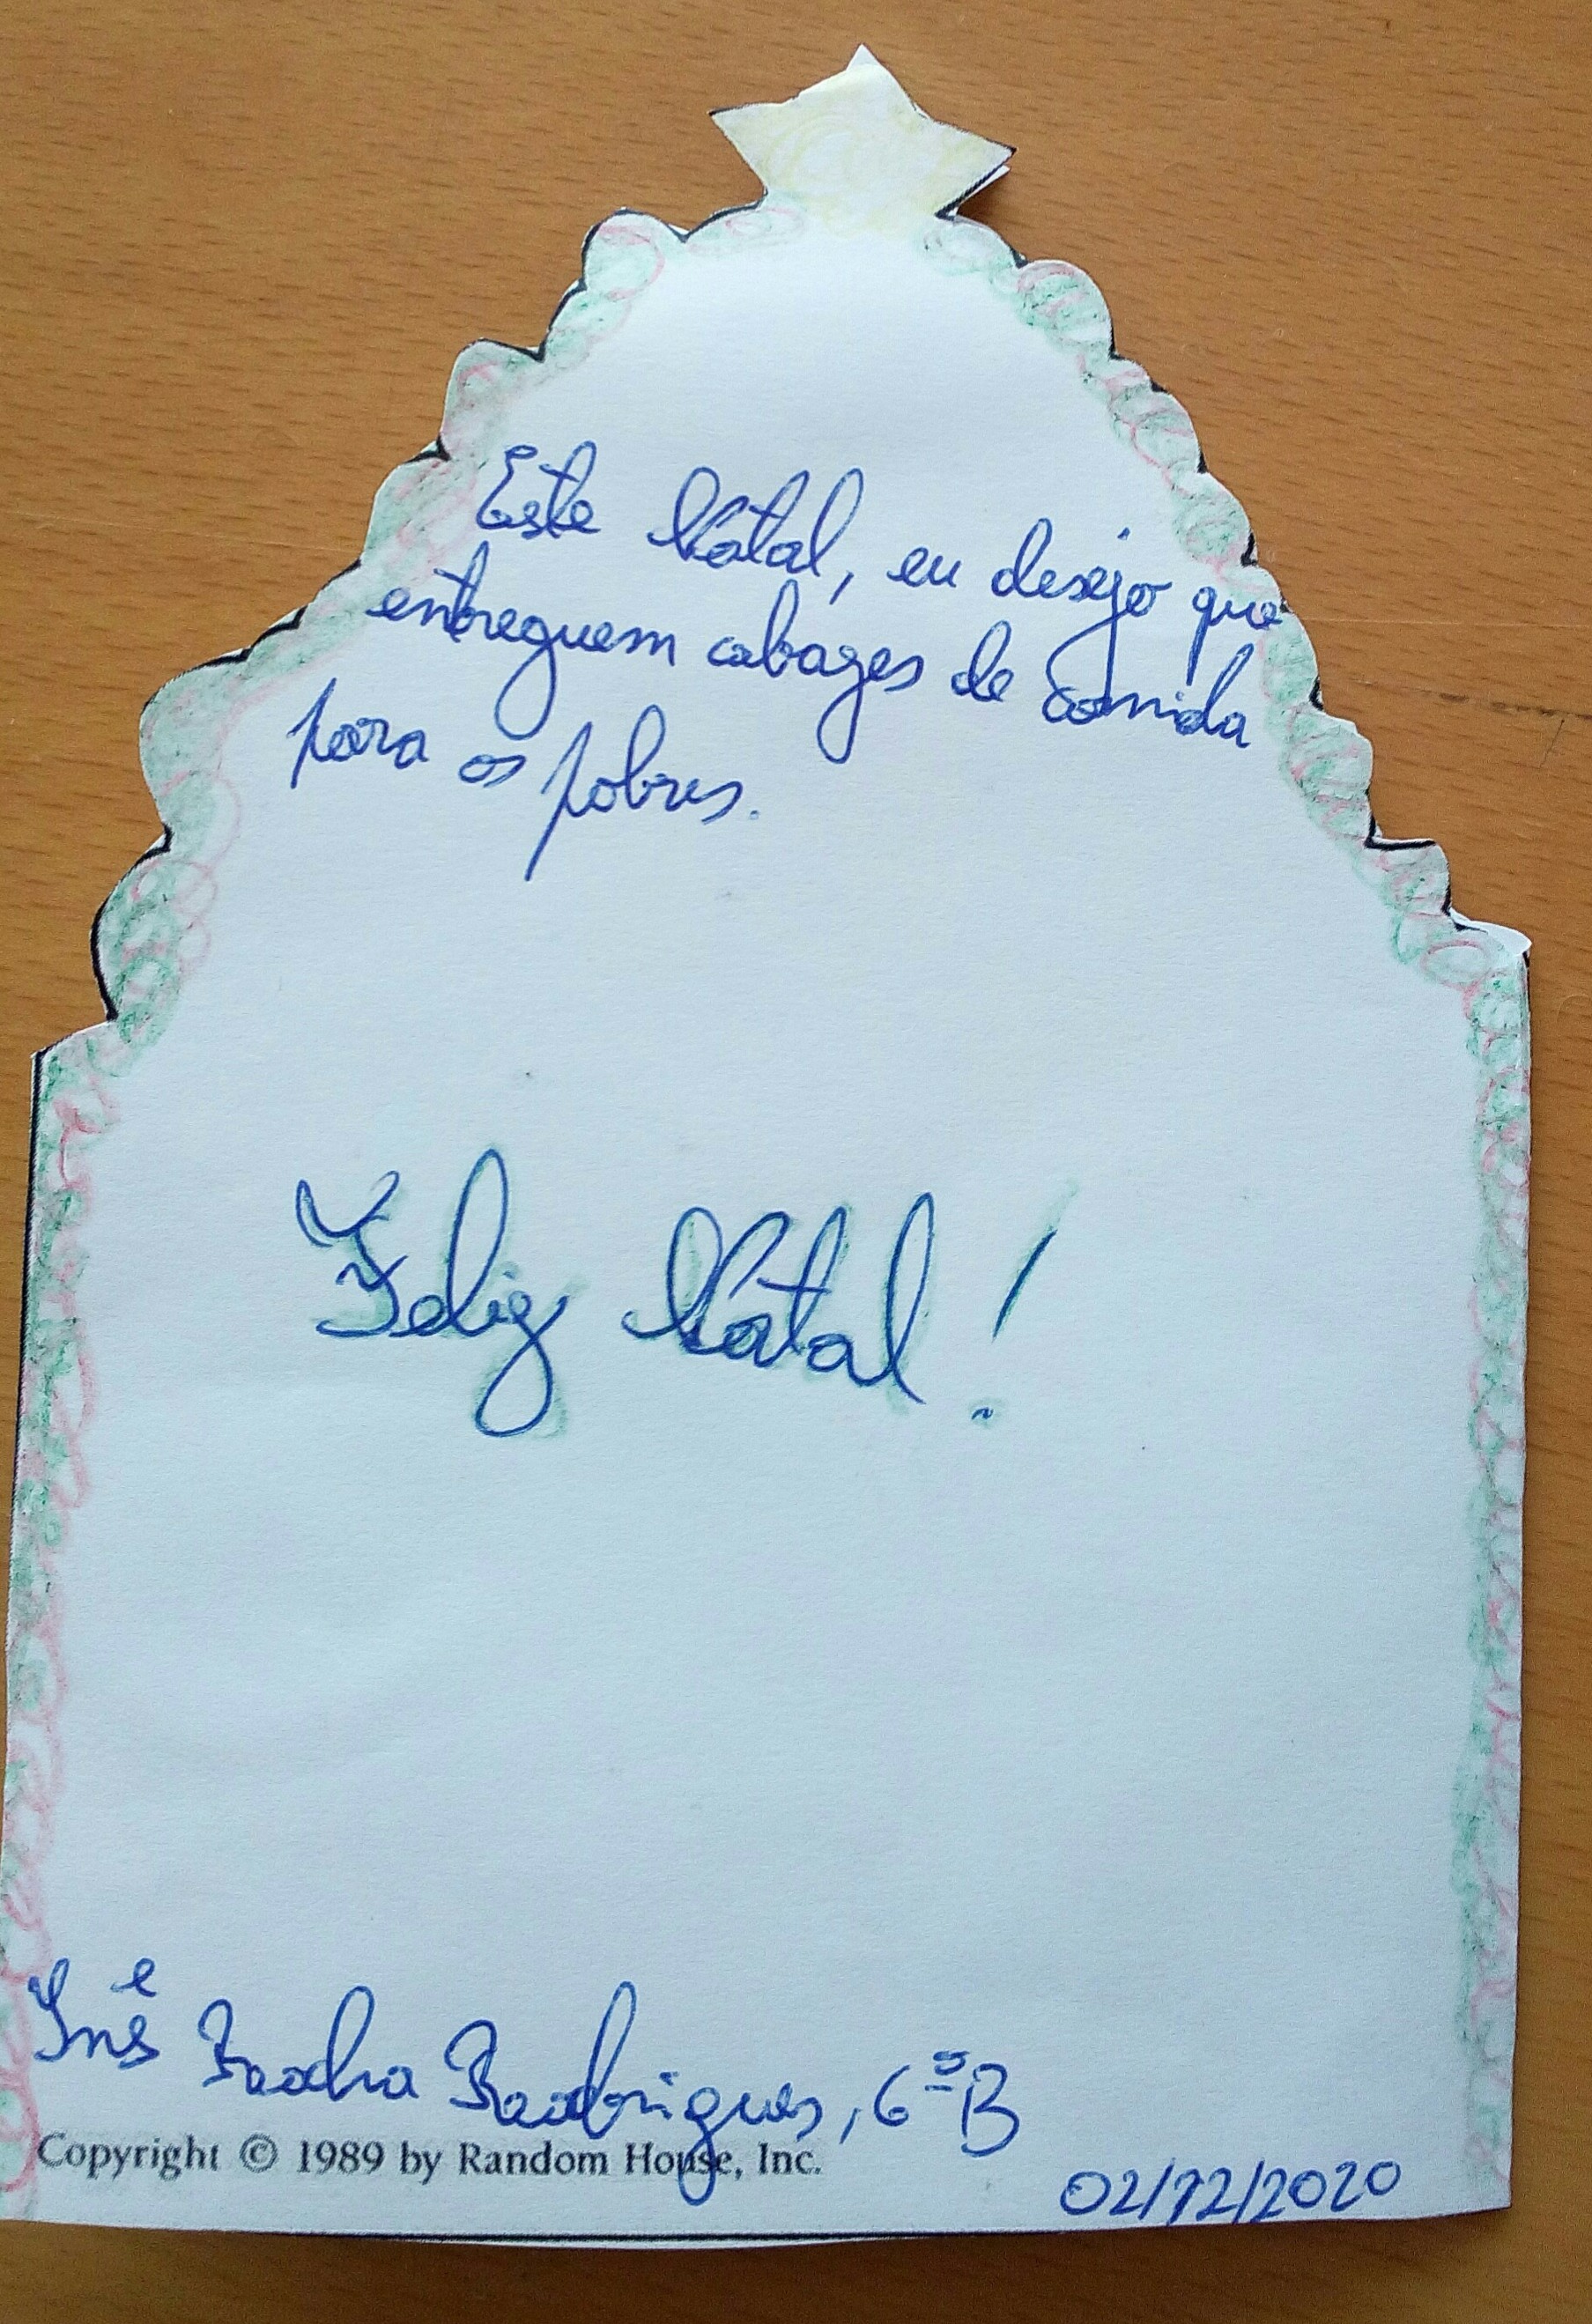 Este Natal, eu desejo que
entreguem cabazes de comida
para os pobres.
Feliz Natal!
Inês Rocha Rodrigues, 6ºB
Copyright © 1989 by Random House, Inc.
02/12/2020